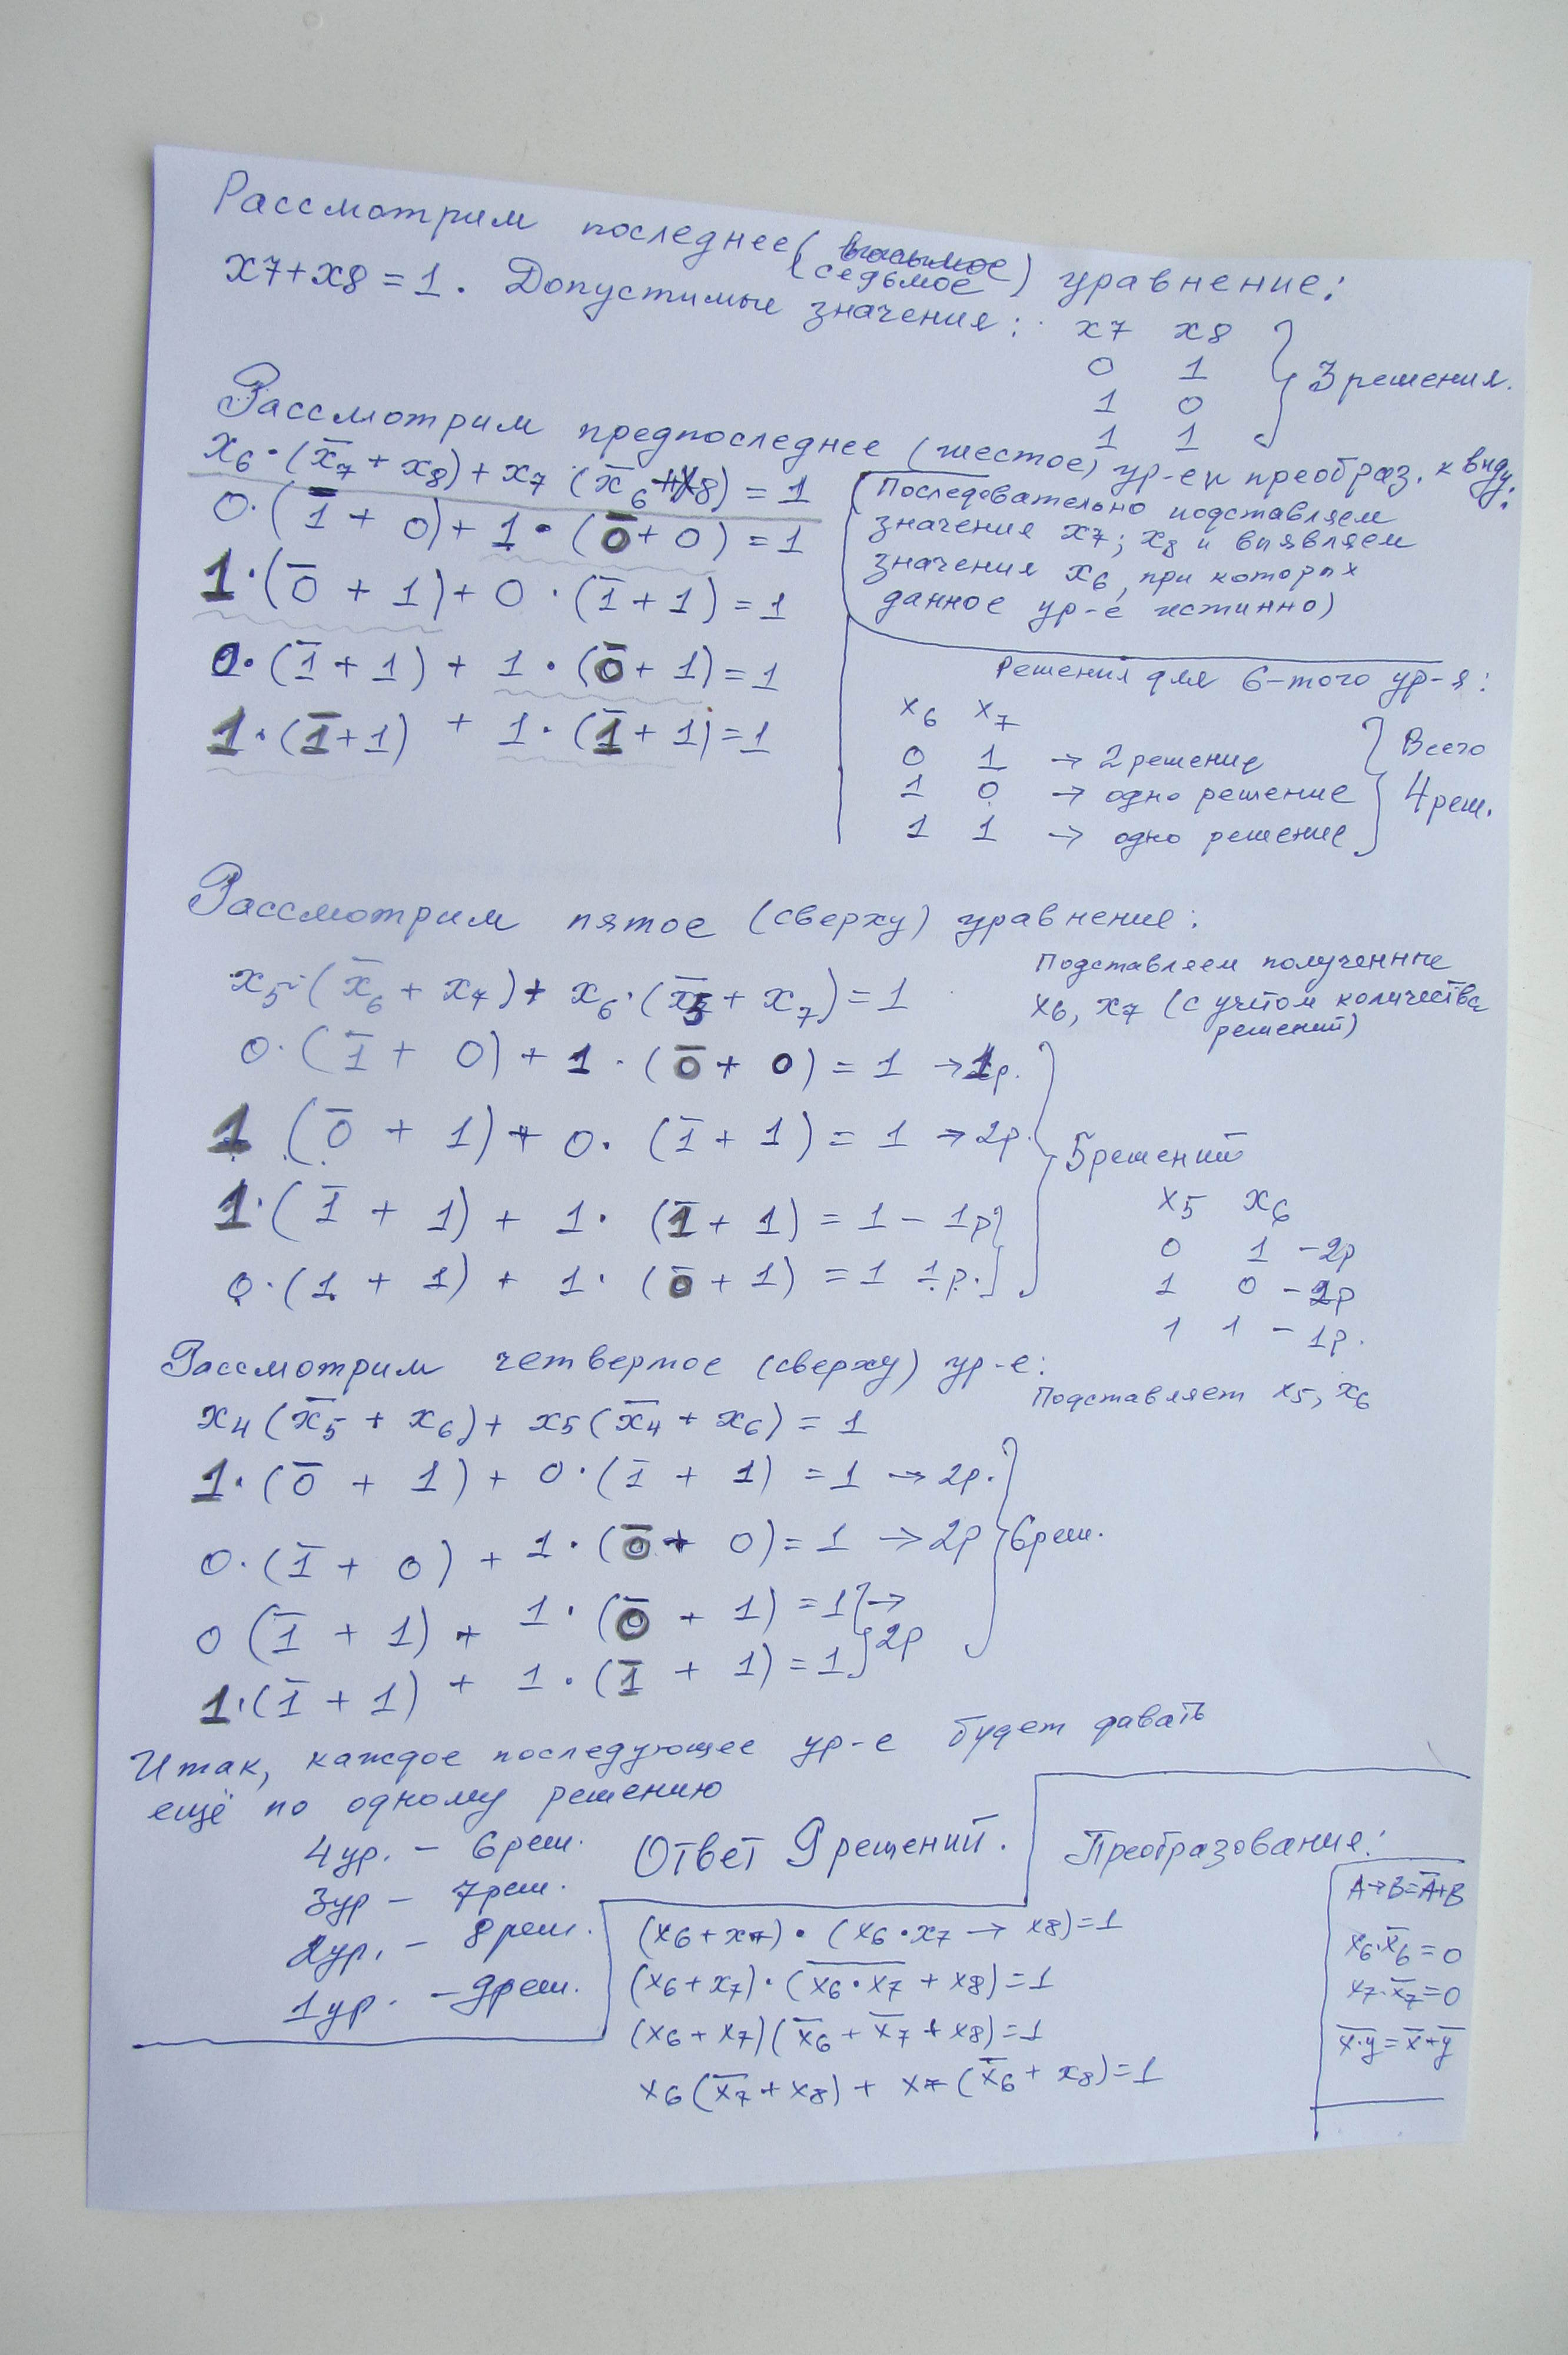 Рассмотрим последнее (седьмое) уравнение:
x7+x8=1. Допустимые значения:
x7 x8
0 1
1 0
1 1
3 решения.
Рассмотрим предпоследнее (шестое) ур-е и преобраз. к виду:
x6·(x̅7+x8)+x7·(x̅6+x8)=1
0·(1̅+0)+1·(0̅+0)=1
1·(0̅+1)+0·(1̅+1)=1
0·(1̅+1)+1·(0̅+1)=1
1·(1̅+1)+1·(1̅+1)=1
(Последовательно подставляем
значения x7; x8 и выявляем
значения x6, при которых
данное ур-е истинно)
Решения для 6-того ур-я:
x6 x7
0 1 → 2 решение
1 0 → одно решение
1 1 → одно решение
Всего
4 реш.
Рассмотрим пятое (сверху) уравнение:
x5·(x̅6+x7)+x6·(x̅5+x7)=1
Подставляем полученные
x6, x7 (с учётом количества
решений)
0·(1̅+0)+1·(0̅+0)=1 →1р.
1 (0̅+1)+0·(1̅+1)=1 →2р.
1·(1̅+1)+1·(1̅+1)=1 – 1р
0·(1+1)+1·(0̅+1)=1 1р.
5 решений
x5 x6
0 1 – 2р
1 0 – 2р
1 1 – 1р.
Рассмотрим четвертое (сверху) ур-е:
Подставляет x5, x6
x4(x̅5+x6)+x5(x̅4+x6)=1
1·(0̅+1)+0·(1̅+1)=1 → 2р.
0·(1̅+0)+1·(0̅+0)=1 → 2р
0 (1̅+1)+1·(0̅+1)=1 →
1·(1̅+1)+1·(1̅+1)=1 2р
6 реш.
Итак, каждое последующее ур-е будет давать
ещё по одному решению
4 ур. – 6 реш.
3 ур – 7 реш.
2 ур. – 8 реш.
1 ур. – 9 реш.
Ответ 9 решений.
Преобразование:
(x6+x7)·(x6·x7→x8)=1
(x6+x7)·(x̅6̅·̅x̅7̅+x8)=1
(x6+x7)(x̅6+x̅7+x8)=1
x6(x̅7+x8)+x7(x̅6+x8)=1
A→B=A̅+B
x6·x̅6=0
x7·x̅7=0
x̅·̅y̅=x̅+y̅